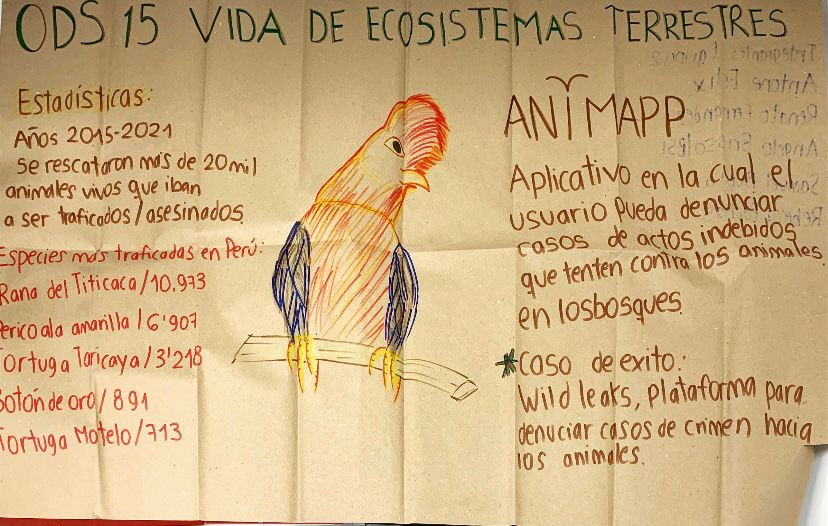 ODS 15 VIDA DE ECOSISTEMAS TERRESTRES
Estadísticas:
Años 2015-2021
Se rescataron más de 20mil
animales vivos que iban
a ser traficados/asesinados.
Especies más traficadas en Perú:
Rana del Titicaca/10.973
Perico ala amarilla/6'907
Tortuga Taricaya/3'218
Botón de oro/891
Tortuga Motelo/713
ANIMAPP
Aplicativo en la cual el
usuario pueda denunciar
casos de actos indebidos
que tenten contra los animales
en losbosques.
*Caso de exito:
Wild leaks, plataforma para
denuciar casos de crimen hacia
los animales.
Integrantes Equipo 2